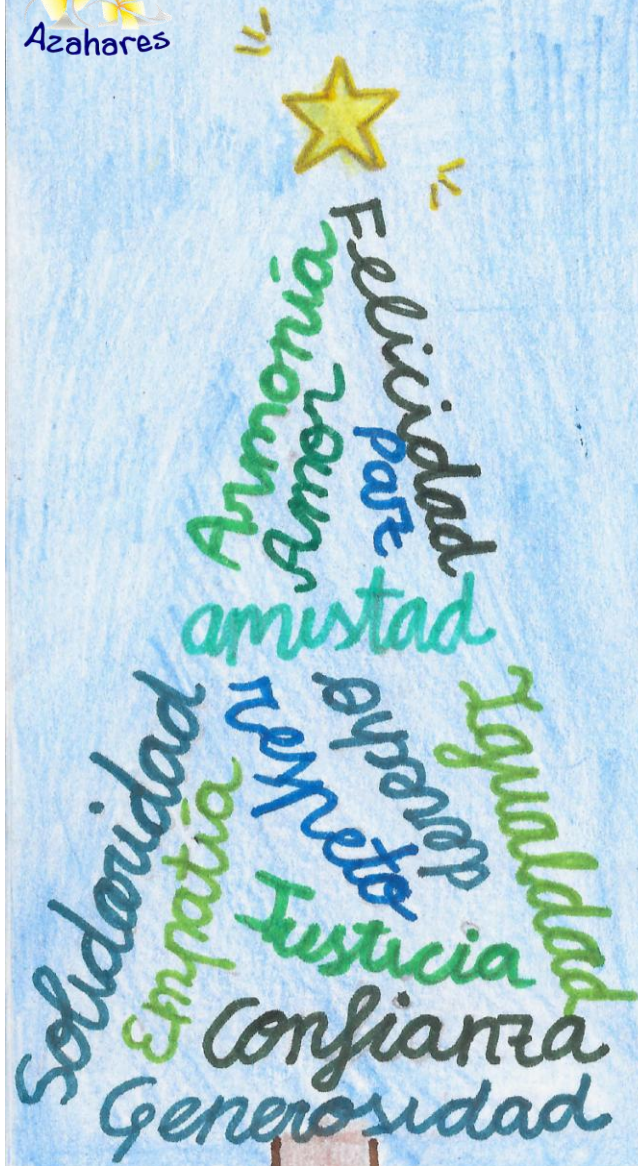 Azahares
Felicidad
Armonía
Amor
paz
amistad
Solidaridad
respeto
derecho
Igualdad
Empatía
Justicia
Confianza
Generosidad